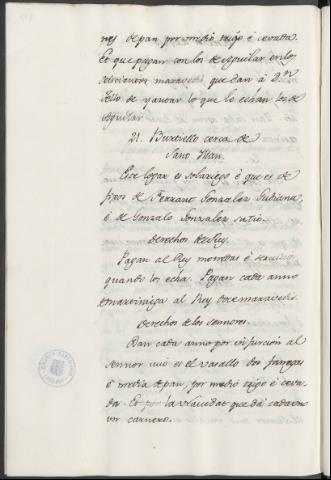 nes de pan por medio trigo é cevada.
Et que pagan con los de Aguilar en los
maravedis que dan á Dn.
Tello de yantar lo que le echan los de
Aguilar
21. Bustiello cerca de
Sant Illan.
Este logar es solariego é que es de
fijos de Ferrant Gonzalez
é de Gonzalo Gonzalez
Derechos del Rey.
Pagan al Rey monedas é servicios
quando los echa. Pagan cada anno
de marziniega al Rey maravedis
Derechos de los sennores.
Dan cada anno por infurcion al
sennor cuio es el vasallo dos fanegas
é media de pan, por medio trigo é ceva-
da. Et por la Navidat que dá cada uno
un carnero.